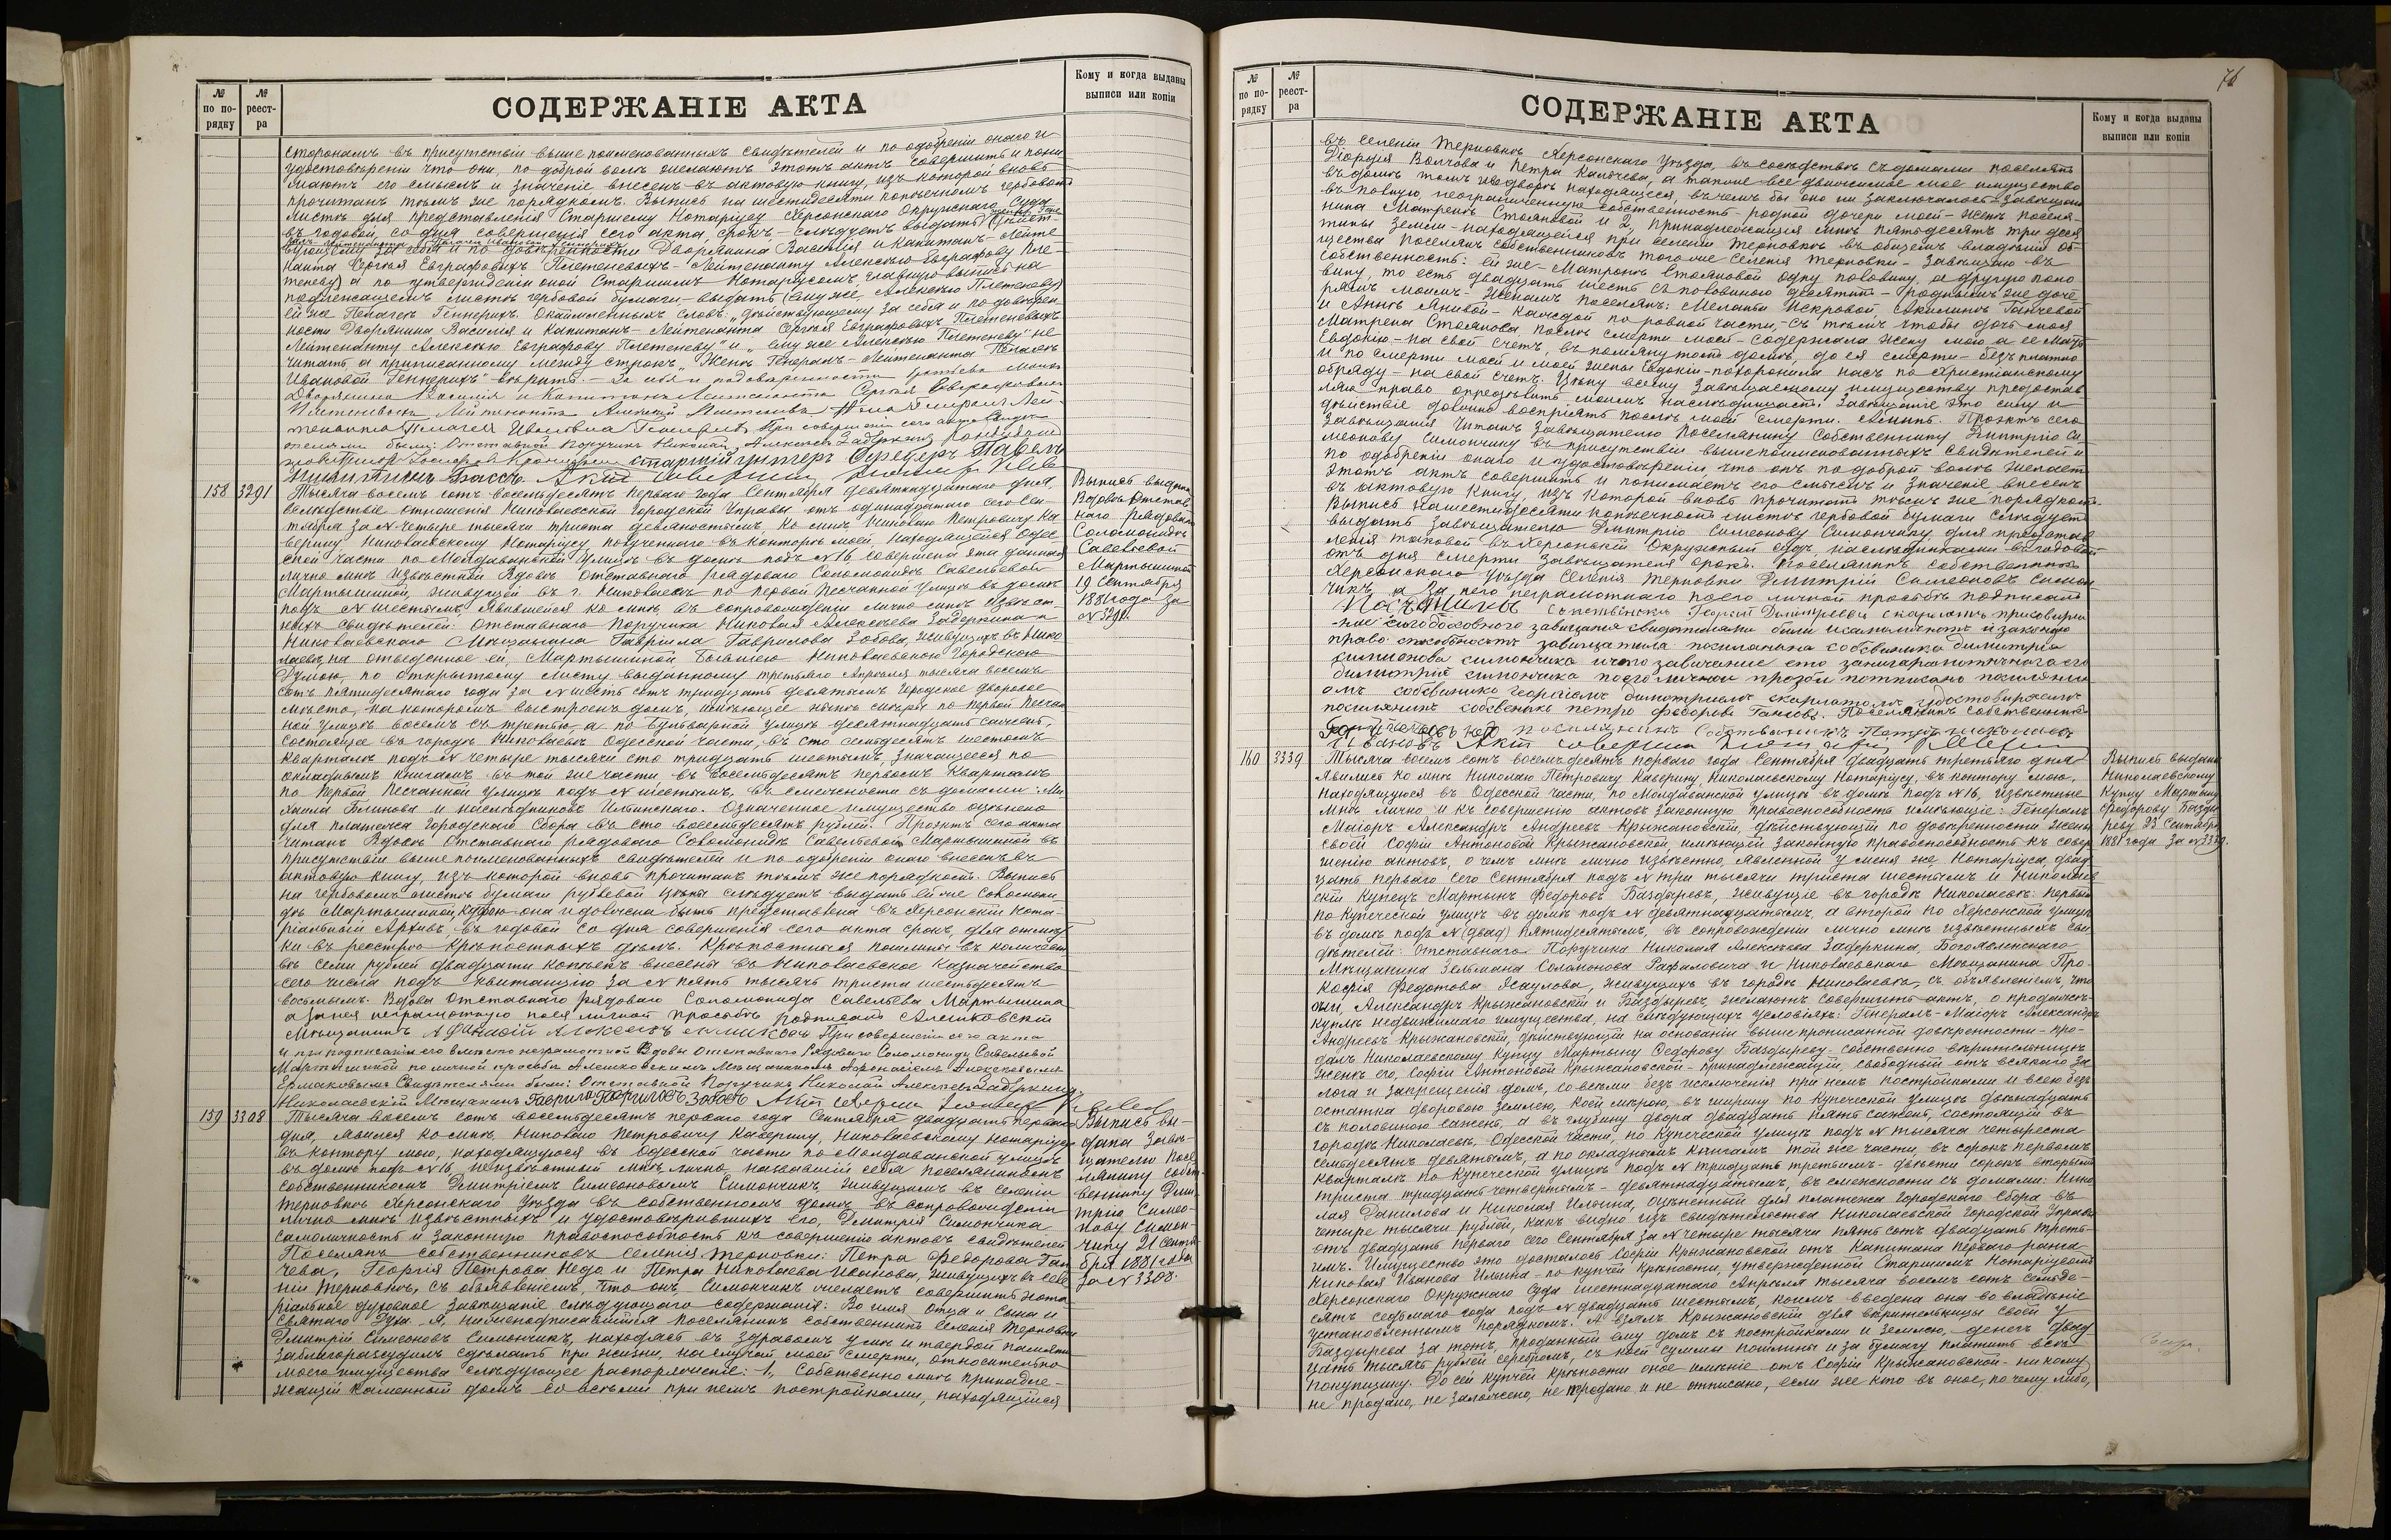 №
по по-
рядку
№
реест-
ра
СОДЕРЖАНІЕ АКТА
Кому и когда выданы
выписи или копіи
сторонамъ въ присутствіи выше поименованныхъ свидѣтелей и по одобреніи онаго и
удостовѣреніи что они, по доброй волѣ желаютъ этотъ актъ совершить и пони
маютъ его смыслъ и значеніе, внесенъ въ актовую книгу, изъ которой вновь
прочитанъ тѣмъ же порядкомъ. Выпись на шестидесяти копѣечномъ гербовомъ
листѣ для представленія Старшему Нотаріусу Херсонскаго Окружнаго Суда
въ годовой, со дня совершенія сего акта, срокъ – слѣдуетъ выдать
за себя и по довѣренности Дворянина Василія и Капитанъ-Лейте
нанта Сергѣя Евграфовыхъ Плетеневыхъ – Лейтенанту Алексѣю Евграфову Пле
теневу) а по утвержденіи оной Старшимъ Нотаріусомъ, главную выпись на
подлежащемъ листѣ гербовой бумаги – выдать (ему же, Алексѣю Плетеневу)
ей же Пелагеѣ Геннерихъ. Окаймленныхъ словъ „дѣйствующему за себя и по довѣрен
ности Дворянина Василія и Капитанъ-Лейтенанта Сергѣя Евграфовыхъ Плетеневыхъ
Лейтенанту Алексѣю Евграфову Плетеневу" и „ему же Алексѣю Плетеневу" не
читать, а приписанному между строкъ „Женѣ Генералъ-Лейтенанта Пелагеѣ
Ивановой Геннерихъ" вѣрить. – За себя и по доверенности
Дворянина Василия и Капитанъ Лейтенанта Сергея Евграфовыхъ
Плетеневыхъ Лейтенантъ Алексей Плетеневъ Жена Генералъ Лей-
тенанта Пелагея Ивановна Геннерихъ При совершеніи сего акта свидѣ
телями были: Отставной Поручикъ Николай Алексѣевъ Задеркинъ
старшій унтеръ Офицеръ Павелъ
Актъ совершилъ Нотаріусъ
158
3291
Тысяча восемь сотъ восемьдесятъ перваго года Сентября девятнадцатаго дня
вслѣдствіе отношенія Николаевской Городской Управы отъ одинадцатаго сего Сен
тября за № четыре тысячи триста девяностымъ, ко мнѣ Николаю Петровичу Ка
верину Николаевскому Нотаріусу полученнаго въ конторѣ моей, находящейся Одес
ской части по Молдаванской улицѣ въ домѣ подъ № 16 совершена эта данная
лично мнѣ извѣстной Вдовѣ отставнаго рядоваго Соломонидѣ Савельевой
Мартышиной, живущей въ г. Николаевѣ по первой Песчанной улицѣ въ домѣ
подъ № шестымъ, явившейся ко мнѣ, въ сопровожденіи лично мнѣ извѣст-
ныхъ свидѣтелей: Отставнаго Поручика Николая Алексѣева Задеркина и
Николаевскаго Мѣщанина Гавріила Гаврилова Зобова, живущихъ въ Нико
лаевѣ, на отведенное ей, Мартышиной бывшею Николаевскою Городскою
Думою, по открытому листу выданному третьяго Апрѣля тысяча восемь
сотъ пятидесятаго года за № шесть сотъ тридцать девятымъ городское дворовое
мѣсто, на которомъ выстроенъ домъ, имѣющее нынѣ мѣры по первой Песчан
ной улицѣ восемь съ третью, а по Бульварной улицѣ девятнадцать сажень,
состоящее въ городѣ Николаевѣ Одесской части, въ сто семьдесятъ шестомъ
кварталѣ подъ № четыре тысячи сто тридцать шестымъ, значащееся по
окладнымъ книгамъ въ той же части въ восемьдесятъ первомъ кварталѣ
по первой Песчанной улицѣ подъ № шестымъ, въ смежности съ домами: Ми
хаила Блинова и наслѣдниковъ Ильинскаго. Означенное имущество оцѣнено
для платежа городскаго сбора въ сто восемьдесятъ рублей. Проэктъ сего акта
читанъ Вдовѣ Отставнаго рядоваго Соломонидѣ Савельевой Мартышиной въ
присутствіи выше поименованныхъ свидѣтелей и по одобреніи онаго внесенъ въ
актовую книгу, изъ которой вновь прочитанъ тѣмъ же порядкомъ. Выпись
на гербовомъ листѣ бумаги рублевой цѣны слѣдуетъ выдать ей же Соломони
дѣ Мартышиной, кудою она и должна быть представлена въ Херсонскій Нота-
ріальный Архивъ, въ годовой со дня совершенія сего акта срокъ, для отмѣт
ки въ реестрѣ крѣпостныхъ дѣлъ. Крѣпостныя пошлины въ количест
вѣ семи рублей двадцати копѣекъ внесены въ Николаевское Казначейство
сего числа подъ квитанцію за № пять тысячъ триста шестьдесятъ
восьмымъ. Вдова отставнаго рядоваго Соломонида Савельева Мартышина
а за нея неграмотную по ея личной просьбѣ подписалъ Алешковскій
мѣщанинъ Афанасій Алексѣевъ При совершеніи сего акта
и при подписаніи его вмѣсто неграмотной Вдовы Отставнаго Рядоваго Соломониды Савельевой
Мартышиной по личной просьбѣ Алешковскимъ Мѣщаниномъ Афанасіемъ Алексѣевымъ
Ермаковымъ Свидѣтелями были: Отставной Поручикъ Николай Алексѣевъ Задеркинъ
Николаевскій Мѣщанинъ Гаврило Гавриловъ Зобовъ Актъ совершилъ Нотаріусъ
Выпись выдана
Вдовѣ Отстав
наго рядоваго
Соломонидѣ
Савельевой
Мартышиной
19 Сентября
1881 года за
№ 3291.
159
3308
Тысяча восемь сотъ восемьдесятъ перваго года Сентября двадцать перваго
дня, явился ко мнѣ Николаю Петровичу Каверину, Николаевскому Нотаріусу
въ контору мою, находящуюся въ Одесской части по Молдаванской улицѣ
въ домѣ подъ № 16, неизвѣстный мнѣ лично, назвавшій себя поселяниномъ
собственникомъ Дмитріемъ Симеоновымъ Симончикъ, живущимъ въ селеніи
Терновкѣ Херсонскаго уѣзда въ собственномъ домѣ въ сопровожденіи
лично мнѣ извѣстныхъ и удостовѣрившихъ его, Дмитрія Симончика
самоличность и законную правоспособность къ совершенію актовъ свидѣтелей
Поселянъ собственниковъ селенія Терновки: Петра Федорова Ган
чева, Георгія Петрова Недо и Петра Николаева Иванова, живущихъ въ селе
ніи Терновкѣ, съ объявленіемъ, что онъ, Симончикъ желаетъ совершить нота
ріальное духовное завѣщаніе слѣдующаго содержанія: Во имя Отца и Сына и
Святаго Духа. Я, нижеподписавшійся поселянинъ собственникъ селенія Терновки
Дмитрій Симеоновъ Симончикъ, находясь въ здравомъ умѣ и твердой памяти
заблагоразсудилъ сдѣлать при жизни, на случай моей смерти, относительно
моего имущества слѣдующее распоряженіе: 1, Собственно мнѣ принадле-
жащій каменный домъ со всѣми при немъ постройками, находящійся
Выпись вы-
дана завѣ-
щателю посе
лянину собст-
веннику Дми
трію Симео-
нову Симон-
чику 21 Сентя
бря 1881 года
за № 3308.
76
№
по по-
рядку
№
реест-
ра
СОДЕРЖАНІЕ АКТА
Кому и когда выданы
выписи или копіи
въ селеніи Терновкѣ Херсонскаго уѣзда, въ сосѣдствѣ съ домами поселянъ
Георгія Волчова и Петра Калчева, а также все движимое мое имущество
въ домѣ томъ и дворѣ находящееся, въ чемъ бы оно ни заключалось – завѣщаю
въ полную, неограниченную собственность – родной дочери моей – женѣ поселя-
нина Матренѣ Стояновой и 2, принадлежащія мнѣ пятьдесятъ три деся
тины земли – находящейся при селеніи Терновкѣ въ общемъ владѣніи об
щества поселянъ собственниковъ того же селенія Терновки – завѣщаю въ
собственность: ей же – Матренѣ Стояновой одну половину, а другую поло
вину, то есть двадцать шесть съ половиною десятинъ – роднымъ же доче
рямъ моимъ – женамъ поселянъ: Меланьи Искровой, Акилинѣ Танчевой
и Аннѣ Янивой – каждой по ровной части, – съ тѣмъ чтобы дочь моя
Матрена Стоянова послѣ смерти моей – содержала жену мою а ея мать
Евдокію – на свой счетъ, въ помянутомъ домѣ, до ея смерти – безъ платно
и по смерти моей и моей жены Евдокіи – похоронила насъ по христіанскому
обряду – на свой счетъ. Цѣну всему завѣщаемому имуществу предостав
ляю право опредѣлить моимъ наслѣдницамъ. Завѣщаніе это силу и
дѣйствіе должно воспріять послѣ моей смерти. Аминь. Проэктъ сего
завѣщанія читанъ завѣщателю поселянину собственнику Дмитрію Си
меонову Симончику въ присутствіи вышепоименованныхъ свидѣтелей и
по одобреніи онаго и удостовѣреніи, что онъ по доброй волѣ желаетъ
этотъ актъ совершить и понимаетъ его смыслъ и значеніе внесенъ
въ актовую книгу, изъ которой вновь прочитанъ тѣмъ же порядкомъ.
Выпись на шестидесяти копѣечномъ листѣ гербовой бумаги слѣдуетъ
выдать завѣщателю Дмитрію Симеонову Симончику, для представ
ленія таковой въ Херсонскій Окружный Судъ, наслѣдниками въ годовой
отъ дня смерти завѣщателя срокъ. Поселянинъ собственникъ
Херсонскаго уѣзда селенія Терновки Дмитрій Симеоновъ Симон
чикъ, а за него неграмотнаго по его личной просьбѣ подписалъ
Георгий Димитриевъ
сего духовного завищания свидетелями били и самоличность и законную
право способность завищателя посилянина собсвиника димитрия
симионова симончика и что завичание ето за ниграмотничого его
димитрия симончика по его личной прозби потписано посиляни
омъ собсвинико георгиемъ димитриемъ удостовиряемъ
посилянинъ собсвеникъ петро федоровъ Ганчовъ. Поселянинъ собственникъ
посилянинъ собственикъ Петръ николаевъ
Ивановъ Актъ совершилъ Нотаріусъ
160
3339
Тысяча восемь сотъ восемьдесятъ перваго года Сентября двадцать третьяго дня
явились ко мнѣ Николаю Петровичу Каверину, Николаевскому Нотаріусу, въ контору мою,
находящуюся въ Одесской части, по Молдаванской улицѣ въ домѣ подъ № 16, извѣстные
мнѣ лично и къ совершенію актовъ законную правоспособность имѣющіе: Генералъ
Маіоръ Александръ Андреевъ Крыжановскій, дѣйствующій по довѣренности жены
своей Софіи Антоновой Крыжановской, имѣющей законную правоспособность къ совер
шенію актовъ, о чемъ мнѣ лично извѣстно, явленной у меня же Нотаріуса, двад
цать перваго сего Сентября подъ № три тысячи триста шестымъ и Николаев
скій Купецъ Мартынъ Федоровъ Баздыревъ, живущіе въ городѣ Николаевѣ: первый
по Купеческой улицѣ въ домѣ подъ № девятнадцатымъ, а второй по Херсонской улицѣ
въ домѣ подъ № (двад) пятидесятымъ, въ сопровожденіи лично мнѣ извѣстныхъ сви
дѣтелей: Отставнаго Поручика Николая Алексѣева Задеркина, Богоявленскаго
Мѣщанина Зельмана Соломонова Рафаловича и Николаевскаго Мѣщанина Про-
кофія Федотова Ясаулова, живущихъ въ городѣ Николаевѣ, съ объявленіемъ, что
они, Александръ Крыжановскій и Баздыревъ, желаютъ совершить актъ, о продажѣ-
куплѣ недвижимаго имущества, на слѣдующихъ условіяхъ: Генералъ-Маіоръ Александръ
Андреевъ Крыжановскій, дѣйствующій на основаніи выше прописанной довѣренности – про-
далъ Николаевскому купцу Мартыну Федорову Баздыреву – собственно вѣрительницѣ
женѣ его, Софіи Антоновой Крыжановской – принадлежащій, свободный отъ всякаго за
лога и запрещенія домъ, со всѣми безъ исключенія при немъ постройками и всею безъ
остатка дворовою землею, коей мѣрою, въ ширину по Купеческой улицѣ двѣнадцать
съ половиною сажень, а въ глубину двора двадцать пять сажень, состоящій въ
городѣ Николаевѣ, Одесской части, по Купеческой улицѣ подъ № тысяча четыреста
семьдесятъ девятымъ, а по окладнымъ книгамъ той же части, въ сорокъ первомъ
кварталѣ по Купеческой улицѣ подъ № тридцать третьимъ – двѣсти сорокъ вторымъ
триста тридцать четвертымъ – девятнадцатымъ, въ смежности съ домами: Нико
лая Данилова и Николая Ильина, оцѣненный для платежа городскаго сбора въ
четыре тысячи рублей, какъ видно изъ свидѣтельства Николаевской Городской Управы
отъ двадцать перваго сего Сентября за № четыре тысячи пять сотъ двадцать треть-
имъ. Имущество это досталось Софіи Крыжановской отъ Капитана перваго ранга
Николая Иванова Ильина – по купчей крѣпости, утвержденной Старшимъ Нотаріусомъ
Херсонскаго Окружнаго Суда шестнадцатаго Апрѣля тысяча восемь сотъ семьде-
сятъ седьмаго года подъ № двадцать шестымъ, коимъ введена она во владѣніе
установленнымъ порядкомъ. А взялъ Крыжановскій для вѣрительницы своей у
Баздырева за тотъ, проданный ему домъ съ постройками и землею, денегъ двад
цать тысячъ рублей серебромъ, съ коей суммы пошлины и за бумагу платить всѣ
покупщику. До сей купчей крѣпости оное имѣніе отъ Софіи Крыжановской – никому
не продано, не заложено, не предано и не отписано, если же кто въ оное, по чему либо,
Выпись выдана
Николаевскому
Купцу Мартыну
Федорову Базды
реву 23 Сентября
1881 года за № 3339.